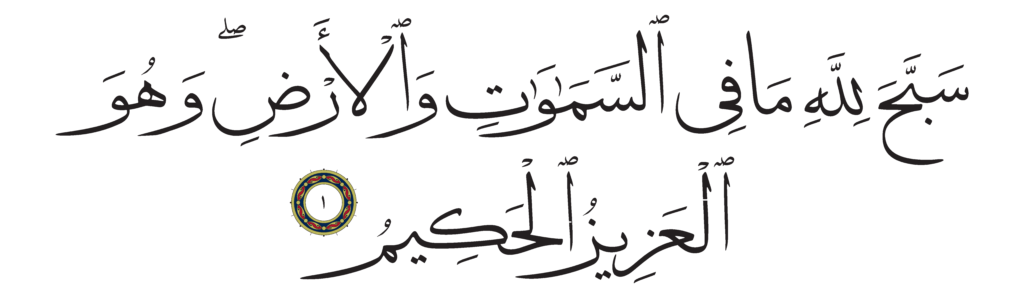 سَبَّحَ لِلَّهِ مَا فِى ٱلسَّمَـٰوَٰتِ وَٱلْأَرْضِ ۖ وَهُوَ
ٱلْعَزِيزُ ٱلْحَكِيمُ ١